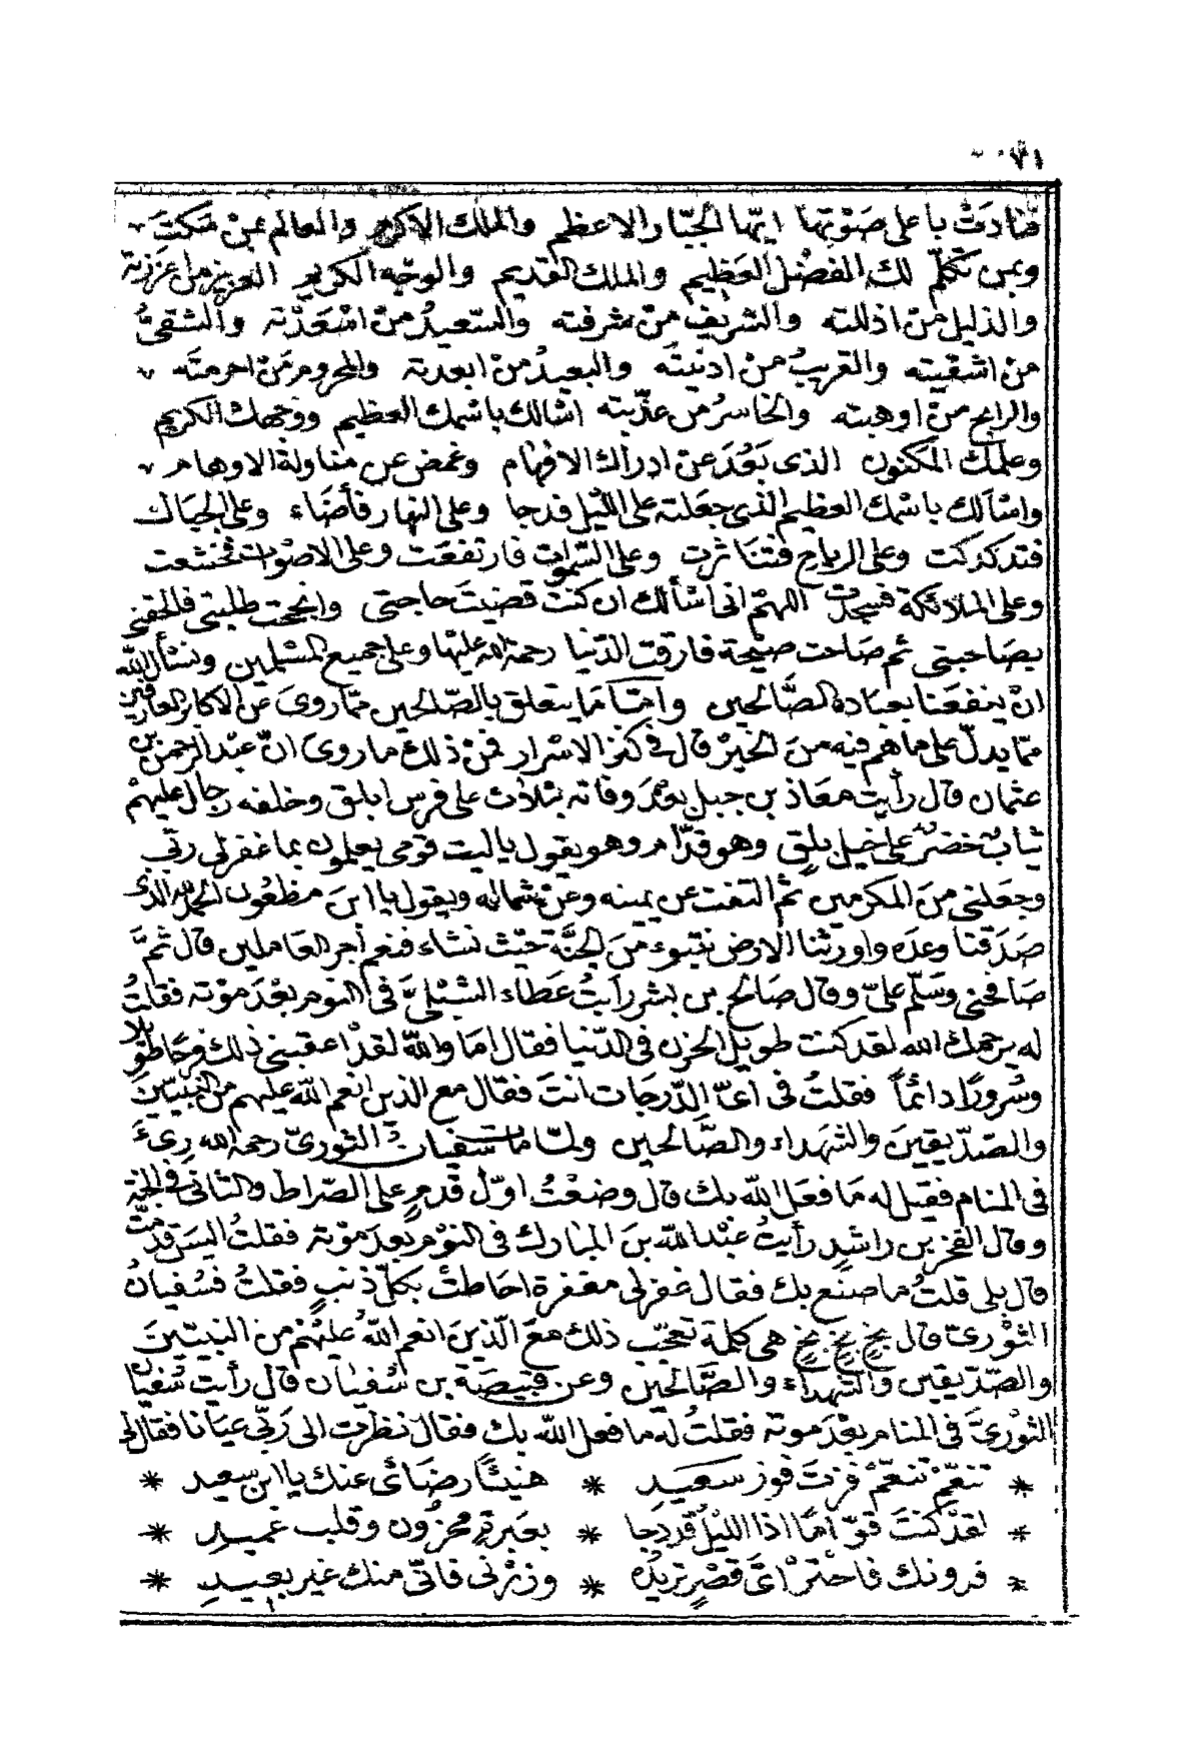 ٧١
فنادَتْ باعلى صَوْتها ايّها الجبّار الاعظم والملك الاكرم والعالم بمنْ سَكَتَ
وبمن تكلّم لك الفضْل العَظيم والملك القديم والوجْه الكريم العزيز من اعززته
والذليل منْ اذللته والشريف منْ شرفته والسّعيدُ منْ اسْعَدْته والشقىُّ
منْ اشقيته والقريبُ منْ ادنيته والبعيدُ منْ ابعدته والمحروم مَنْ احرمتَه
والرابح منْ اوهبته والخاسرُ منْ عذّبته اسْالك باسْمك العظيم ووجْهك الكريم
وعلمك المكنون الذى بَعُدَ عنْ ادراك الافهام وغمض عن مناولة الاوهام
واسْألك باسْمك العظيم الذى جعَلته على اللّيل فدجا وعلى النهار فأضَاء وعلى الجبال
فتدكدكت وعلى الرياح فتناثرت وعلى السّموات فارتفعَت وعلى الاصْوات فخشعت
وعلى الملائكة فسجدت اللهمّ انى اسْألك ان كنتَ قضيتَ حاجتى وانجحت طلبتى فالحقنى
بصَاحبتى ثم صَاحت صيْحة فارقت الدّنيا رحمة الله عليْها وعلى جميع المسْلمين ونسْأل اللّه
انْ ينفعَنا بعبَاده الصَّالحين وامّا مَا يتعلق بالصّالحين ممّا روىَ عنْ الاكابر العارفين
ممّا يدلّ على ما هم فيه منَ الخيْر قال فى كنز الاسْرار فمنْ ذلك ما روىَ انّ عبْد الرحمن بن
عثمان قال رأيت معَاذ بن جبل بعْدَ وفاته بثلاث على فرس ابلق وخلفه رجال عليهمْ
ثيابٌ خضرٌ على خيل بلقٍ وهو قدّام وهو يقول ياليت قومى يعلمون بما غفر لى ربّى
وجعَلنى منَ المكرمين ثمّ التفت عن يمينه وعنْ شماله ويقول يا ابنَ مظعُون الحمد لله الذى
صَدَقنا وعدَه واورثنا الارض نتبوء منَ الجنَّة حيْث نشاء فنعم أجر العَاملين قال ثمَّ
صَافحنى وسَلّم علىّ وقال صَالح بن بشر رأيتُ عَطاء السّلمىَّ فى النوم بعْدَ موْته فقلتُ
له يرحمك الله لقد كنت طويل الحزن فى الدّنيا فقال امَا واللّه لقدْ اعقبنى ذلك فرحًا طويلا
وسُرورًا دائمًا فقلتُ فى اىّ الدّرجات انتَ فقال مع الذين انعم اللّه عليهم من النبيّينَ
والصّدّيقينَ والشهداء والصَّالحين ولمّا مات سفيان الثورىّ رحمه الله رىءَ
فى المنام فقيل له مَا فعَل اللّه بك قال وضعْتُ اوّل قدمٍ على الصّراط والثانى فى الجنة
وقال الفخر بن راشدٍ رأيتُ عبْد اللّه بنَ المبارك فى النوْم بعدَ موْته فقلتُ اليسَ قدْ متّ
قال بلى قلتُ ما صنع بك فقال غفر لى مغفرة احَاطتْ بكلّ ذنبٍ فقلتُ فسُفيانُ
الثوْرىّ قال بخٍ بخٍ بخٍ هى كلمة تعجّب ذلك معَ الّذينَ انعم اللّه عليْهمْ من النبيّينَ
والصّدّيقين والشهداء والصَّالحين وعن قبيصَة بن سُفيان قال رأيت سُفيانَ
الثوْرىّ فى المنام بعْدَ موته فقلتُ له ما فعل اللّه بك فقال نظرت الى رَبّى عيَانا فقال لى
* تنعّمْ تنعّمْ فزتَ فوز سَعيدٍ * هنيئًا رضَائى عنك يا ابن سعيد *
* لقدْ كنتَ قوّامًا اذا الليْلُ قد دجا * بعَبرَةِ محزُون وقلب عميدِ *
* فدونك فاخْترْ اىّ قصْرٍ تريْدُه * وزرْنى فانّى منك غير بعيدِ *